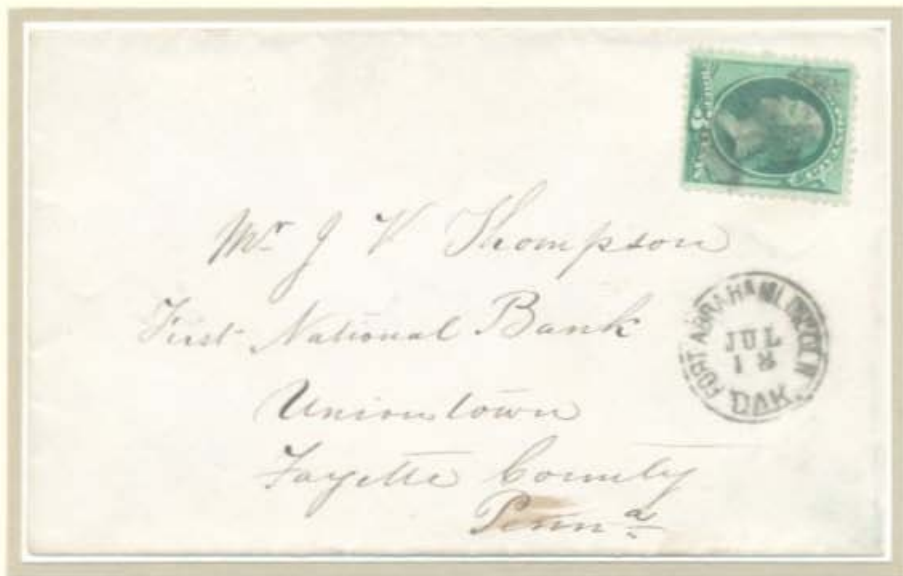 Mr J V Thompson
First National Bank
Uniontown
Fayette County
Penn a
FORT ABRAHAM LINCOLN
JUL
DAK.
3